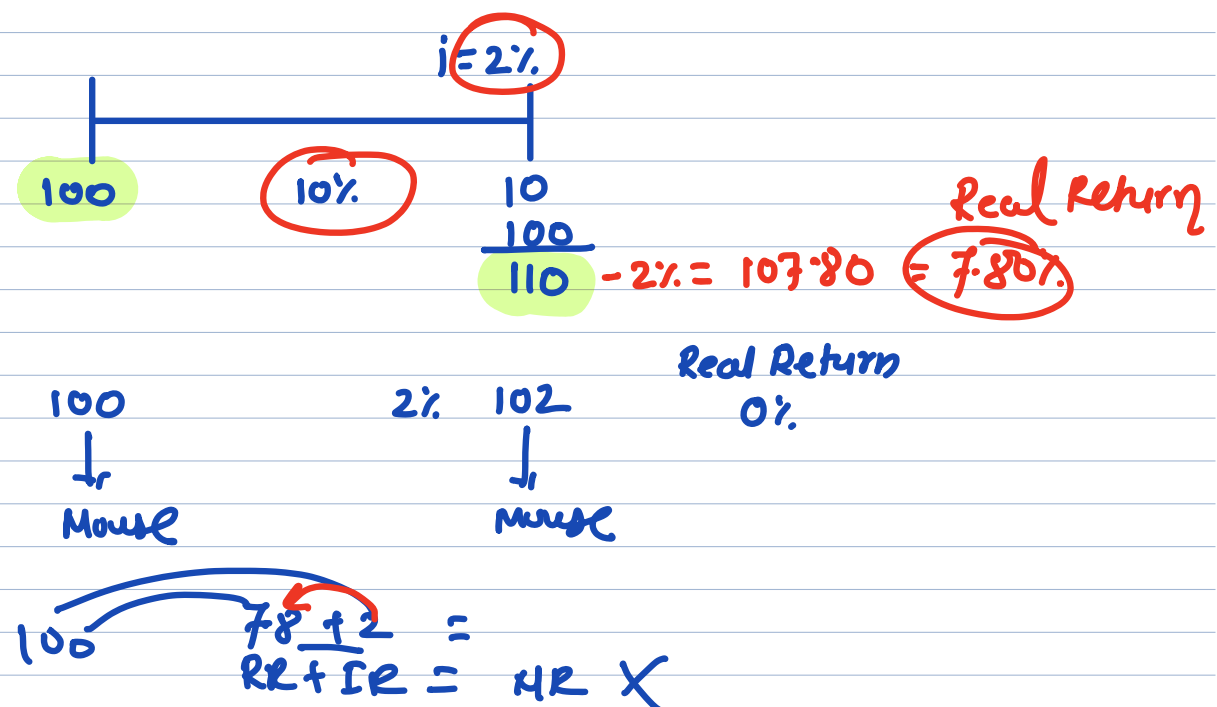 i = 2%
100 10% 10
100
110 - 2% = 107.80 = 7.80%
Real Return
Real Return
100 2% 102 0%
Mouse Mouse
100 78 + 2 =
RR + IR = NR X